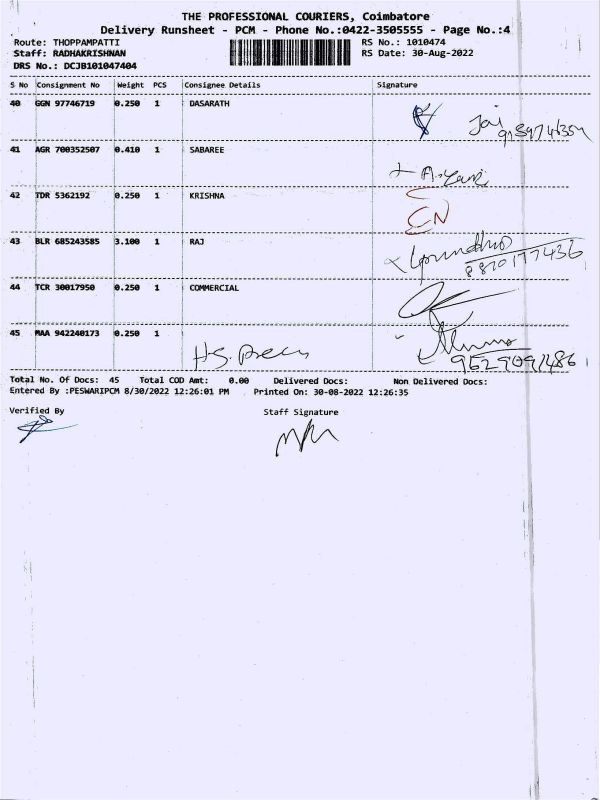 THE PROFESSIONAL COURIERS, Coimbatore
Delivery Runsheet - PCM - Phone No.:0422-3505555 - Page No.:4
Route: THOPPAMPATTI RS No.: 1010474
Staff: RADHAKRISHNAN RS Date: 30-Aug-2022
DRS No.: DCJB101047404
S No Consignment No Weight PCS Consignee Details Signature
40 GGN 97746719 0.250 1 DASARATH
41 AGR 700352507 0.410 1 SABAREE
42 TDR 5362192 0.250 1 KRISHNA
43 BLR 685243585 3.100 1 RAJ
8870177436
44 TCR 30017950 0.250 1 COMMERCIAL
45 MAA 942240173 0.250 1
Total No. Of Docs: 45 Total COD Amt: 0.00 Delivered Docs: Non Delivered Docs:
Entered By :PESWARIPCM 8/30/2022 12:26:01 PM Printed On: 30-08-2022 12:26:35
Verified By Staff Signature